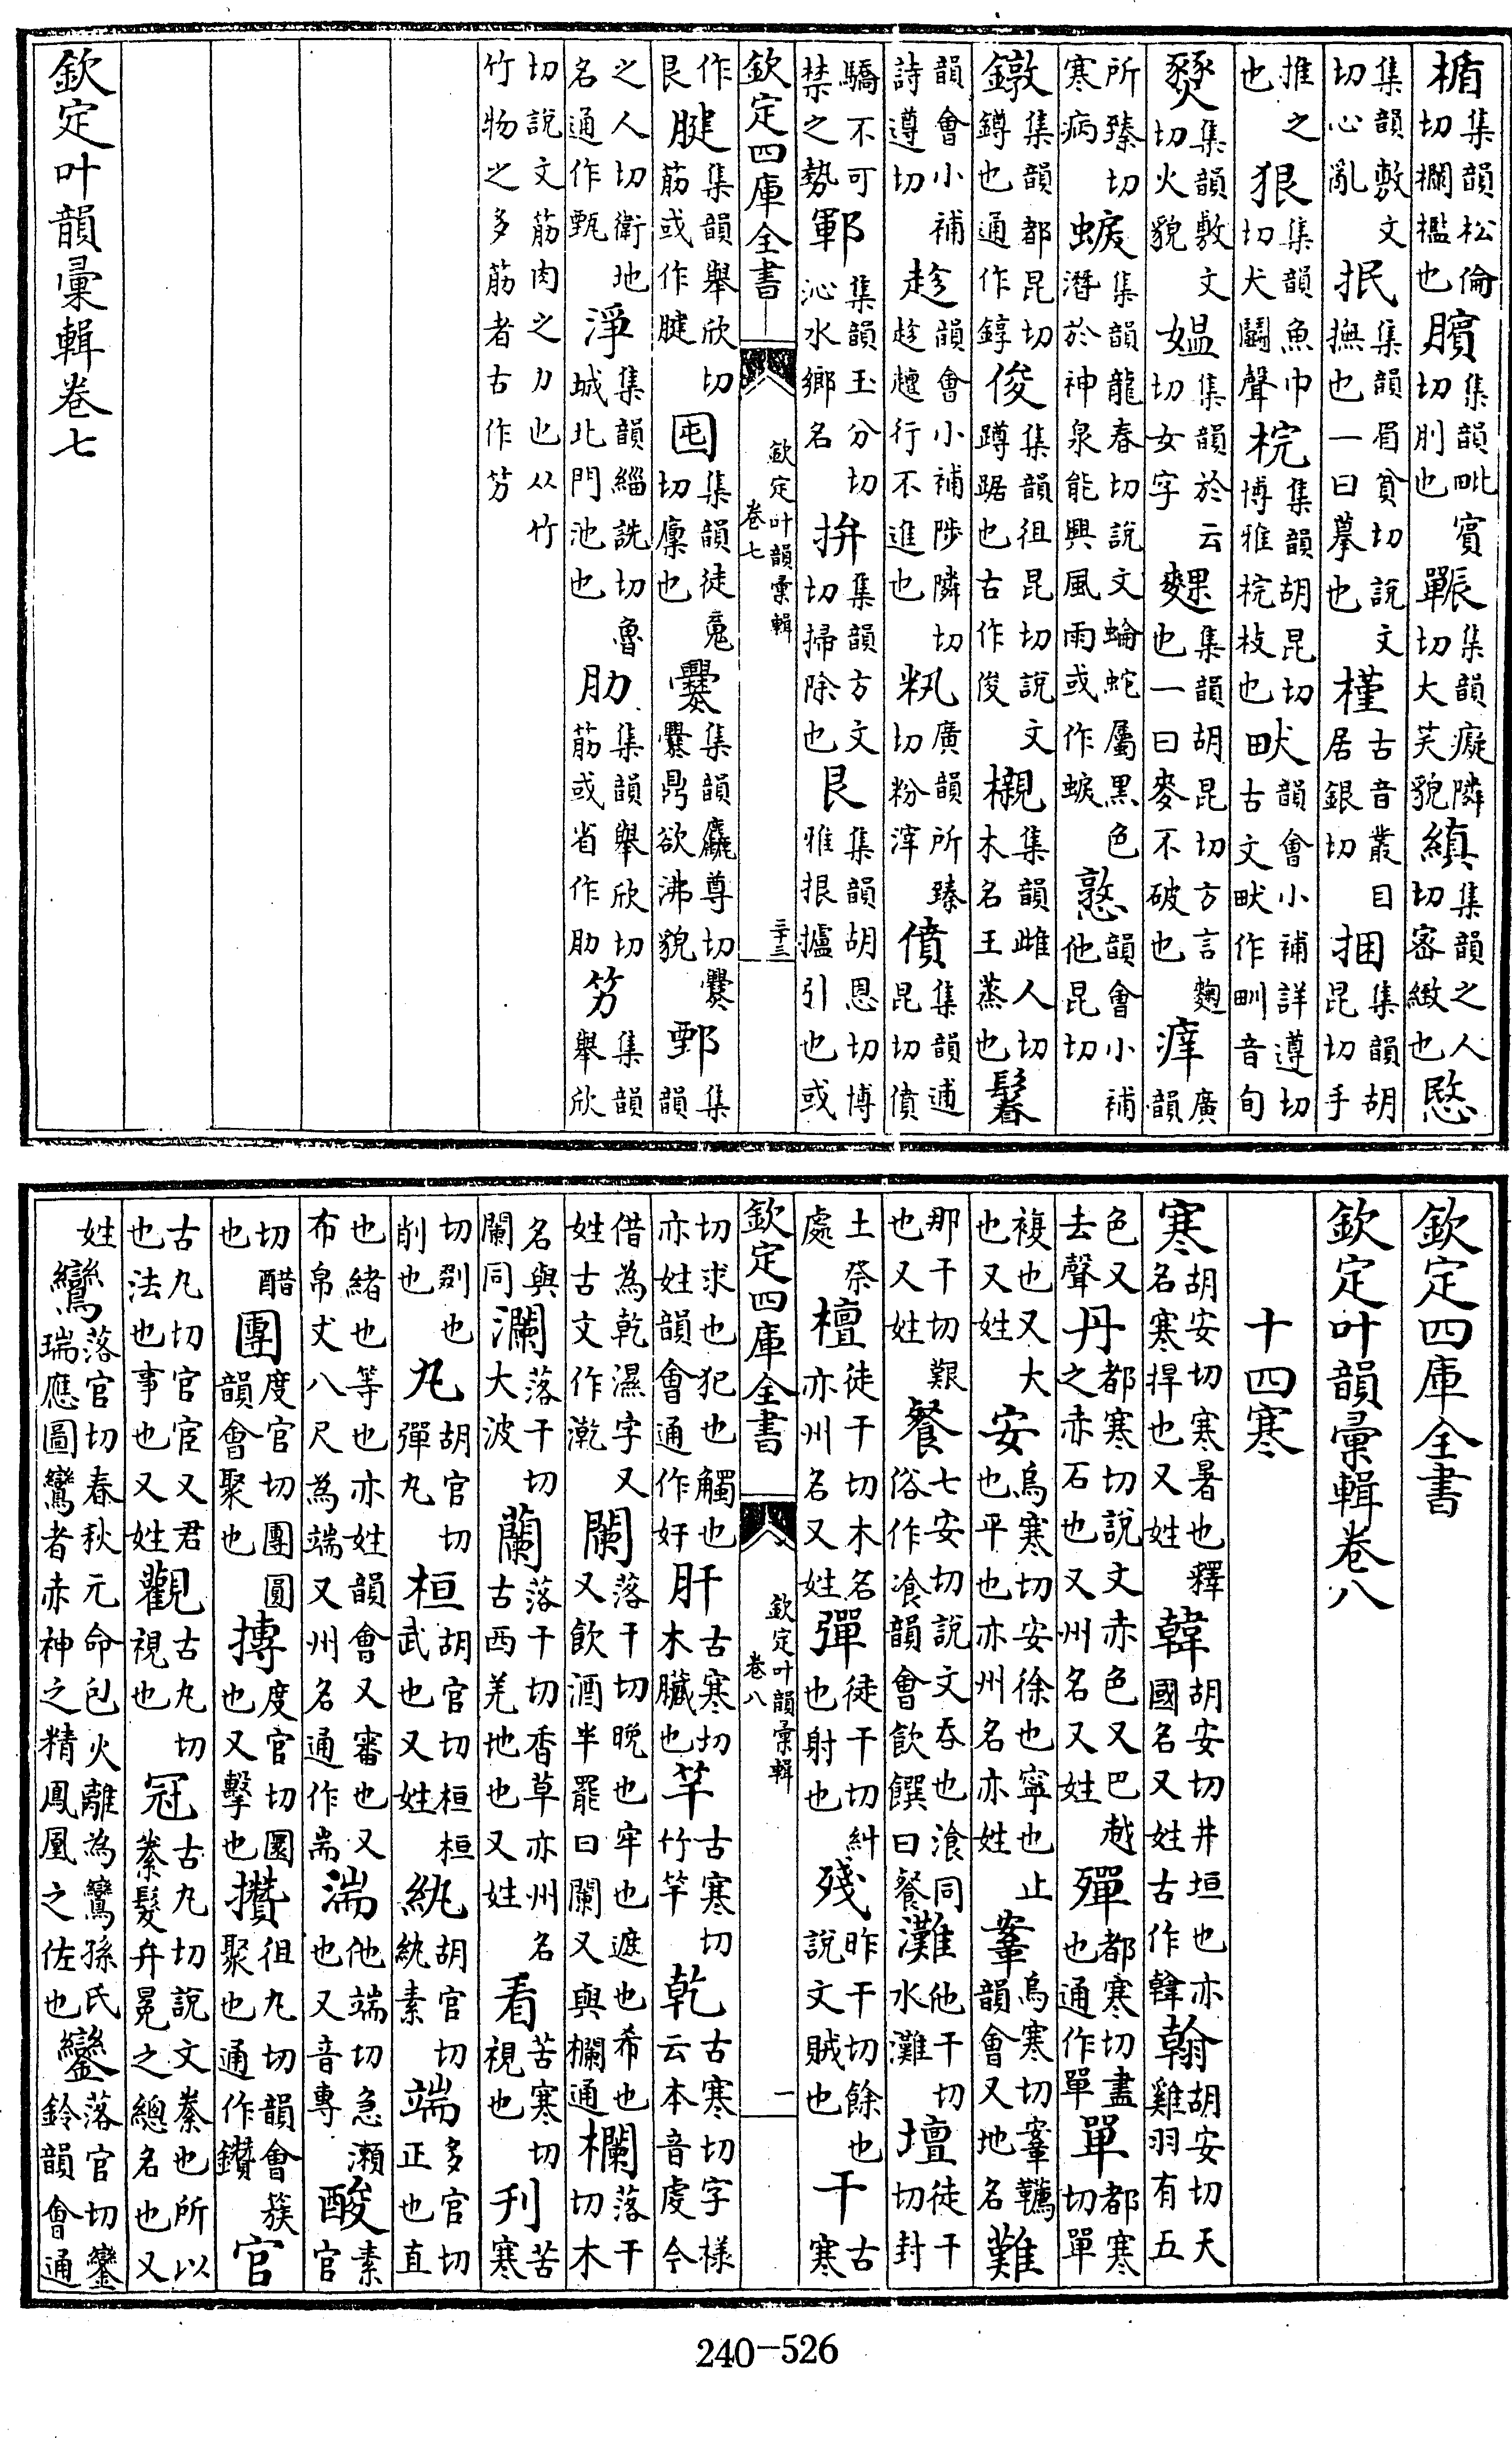 楯集韻松倫切欄檻也臏集韻毗賓切刖也辴集韻癡隣切大笑貌縝集韻之人切宻緻也愍
集韻敷文切心亂抿集韻眉貧切説文撫也一曰摹也槿古音叢目居銀切捆集韻胡昆切手
推之也狠集韻魚巾切犬鬬聲梡集韻胡昆切博雅梡杖也畎韻會小補詳遵切古文畎作甽音旬
燹集韻敷文切火貌媪集韻於云切女字䴹集韻胡昆切方言麴也一曰麥不破也瘁廣韻
所臻切寒病蜧集韻龍春切説文蜦蛇屬黒色潛於神泉能興風雨或作蜧憝韻會小補他昆切
鐓集韻都昆切鐏也通作錞俊集韻徂昆切説文蹲踞也古作俊櫬集韻雌人切木名王蒸也鬊
韻會小補詩遵切趁韻會小補陟隣切趁趲行不進也籸廣韻所臻切粉滓僨集韻逋昆切僨
驕不可禁之勢鄆集韻王分切沁水鄉名拚集韻方文切掃除也艮集韻胡恩切博雅拫攎引也或
欽定四庫全書 欽定叶韻彙輯卷七 三十三
作艮腱集韻舉欣切筋或作腱囤集韻徒䰟切廩也爨集韻麤尊切爨爨鼎欲沸貌鄄集韻
之人切衛地名通作甄淨集韻緇詵切魯城北門池也肋集韻舉欣切筋或省作肋笏集韻舉欣
切説文筋肉之力也从竹竹物之多筋者古作笏
欽定叶韻彙輯卷七
欽定四庫全書
欽定叶韻彙輯卷八
十四寒
寒胡安切寒暑也釋名寒捍也又姓韓胡安切井垣也亦國名又姓古作韓翰胡安切天雞羽有五
色又去聲丹都寒切説文赤色又巴越之赤石也又州名又姓殫都寒切盡也通作單單都寒切單
複也又大也又姓安烏寒切安徐也寧也止也平也亦州名亦姓鞌烏寒切鞌韉韻會又地名難
那干切艱也又姓餐七安切説文吞也飡同俗作飡韻會飲饌曰餐灘他干切水灘壇徒干切封
土祭處檀徒干切木名亦州名又姓彈徒干切糾也射也殘昨干切餘也説文賊也干古寒
欽定四庫全書 欽定叶韻彙輯卷八 一
切求也犯也觸也亦姓韻會通作奸肝古寒切木臟也竿古寒切竹竿乾古寒切字様云本音虔今
借為乾濕字又姓古文作漧闌落干切晩也牢也遮也希也又飲酒半罷曰闌又與欄通欄落干切木
名與闌同瀾落干切大波蘭落干切香草亦州名古西羌地也又姓看苦寒切視也刋苦寒
切剟也削也丸胡官切彈丸桓胡官切桓桓武也又姓紈胡官切紈素端多官切正也直
也緒也等也亦姓韻會又審也又布帛丈八尺為端又州名通作耑湍他端切急瀬也又音專酸素官
切醋也團度官切團圓韻會聚也摶度官切圜也又擊也攢徂丸切韻會簇聚也通作鑚官
古丸切官宦又君也法也事也又姓觀古丸切視也冠古丸切説文豢也所以豢髮弁冕之總名也又
姓鸞落官切春秋元命包火離為鸞孫氏瑞應圖鸞者赤神之精鳳凰之佐也鑾落官切鑾鈴韻會通
240-526